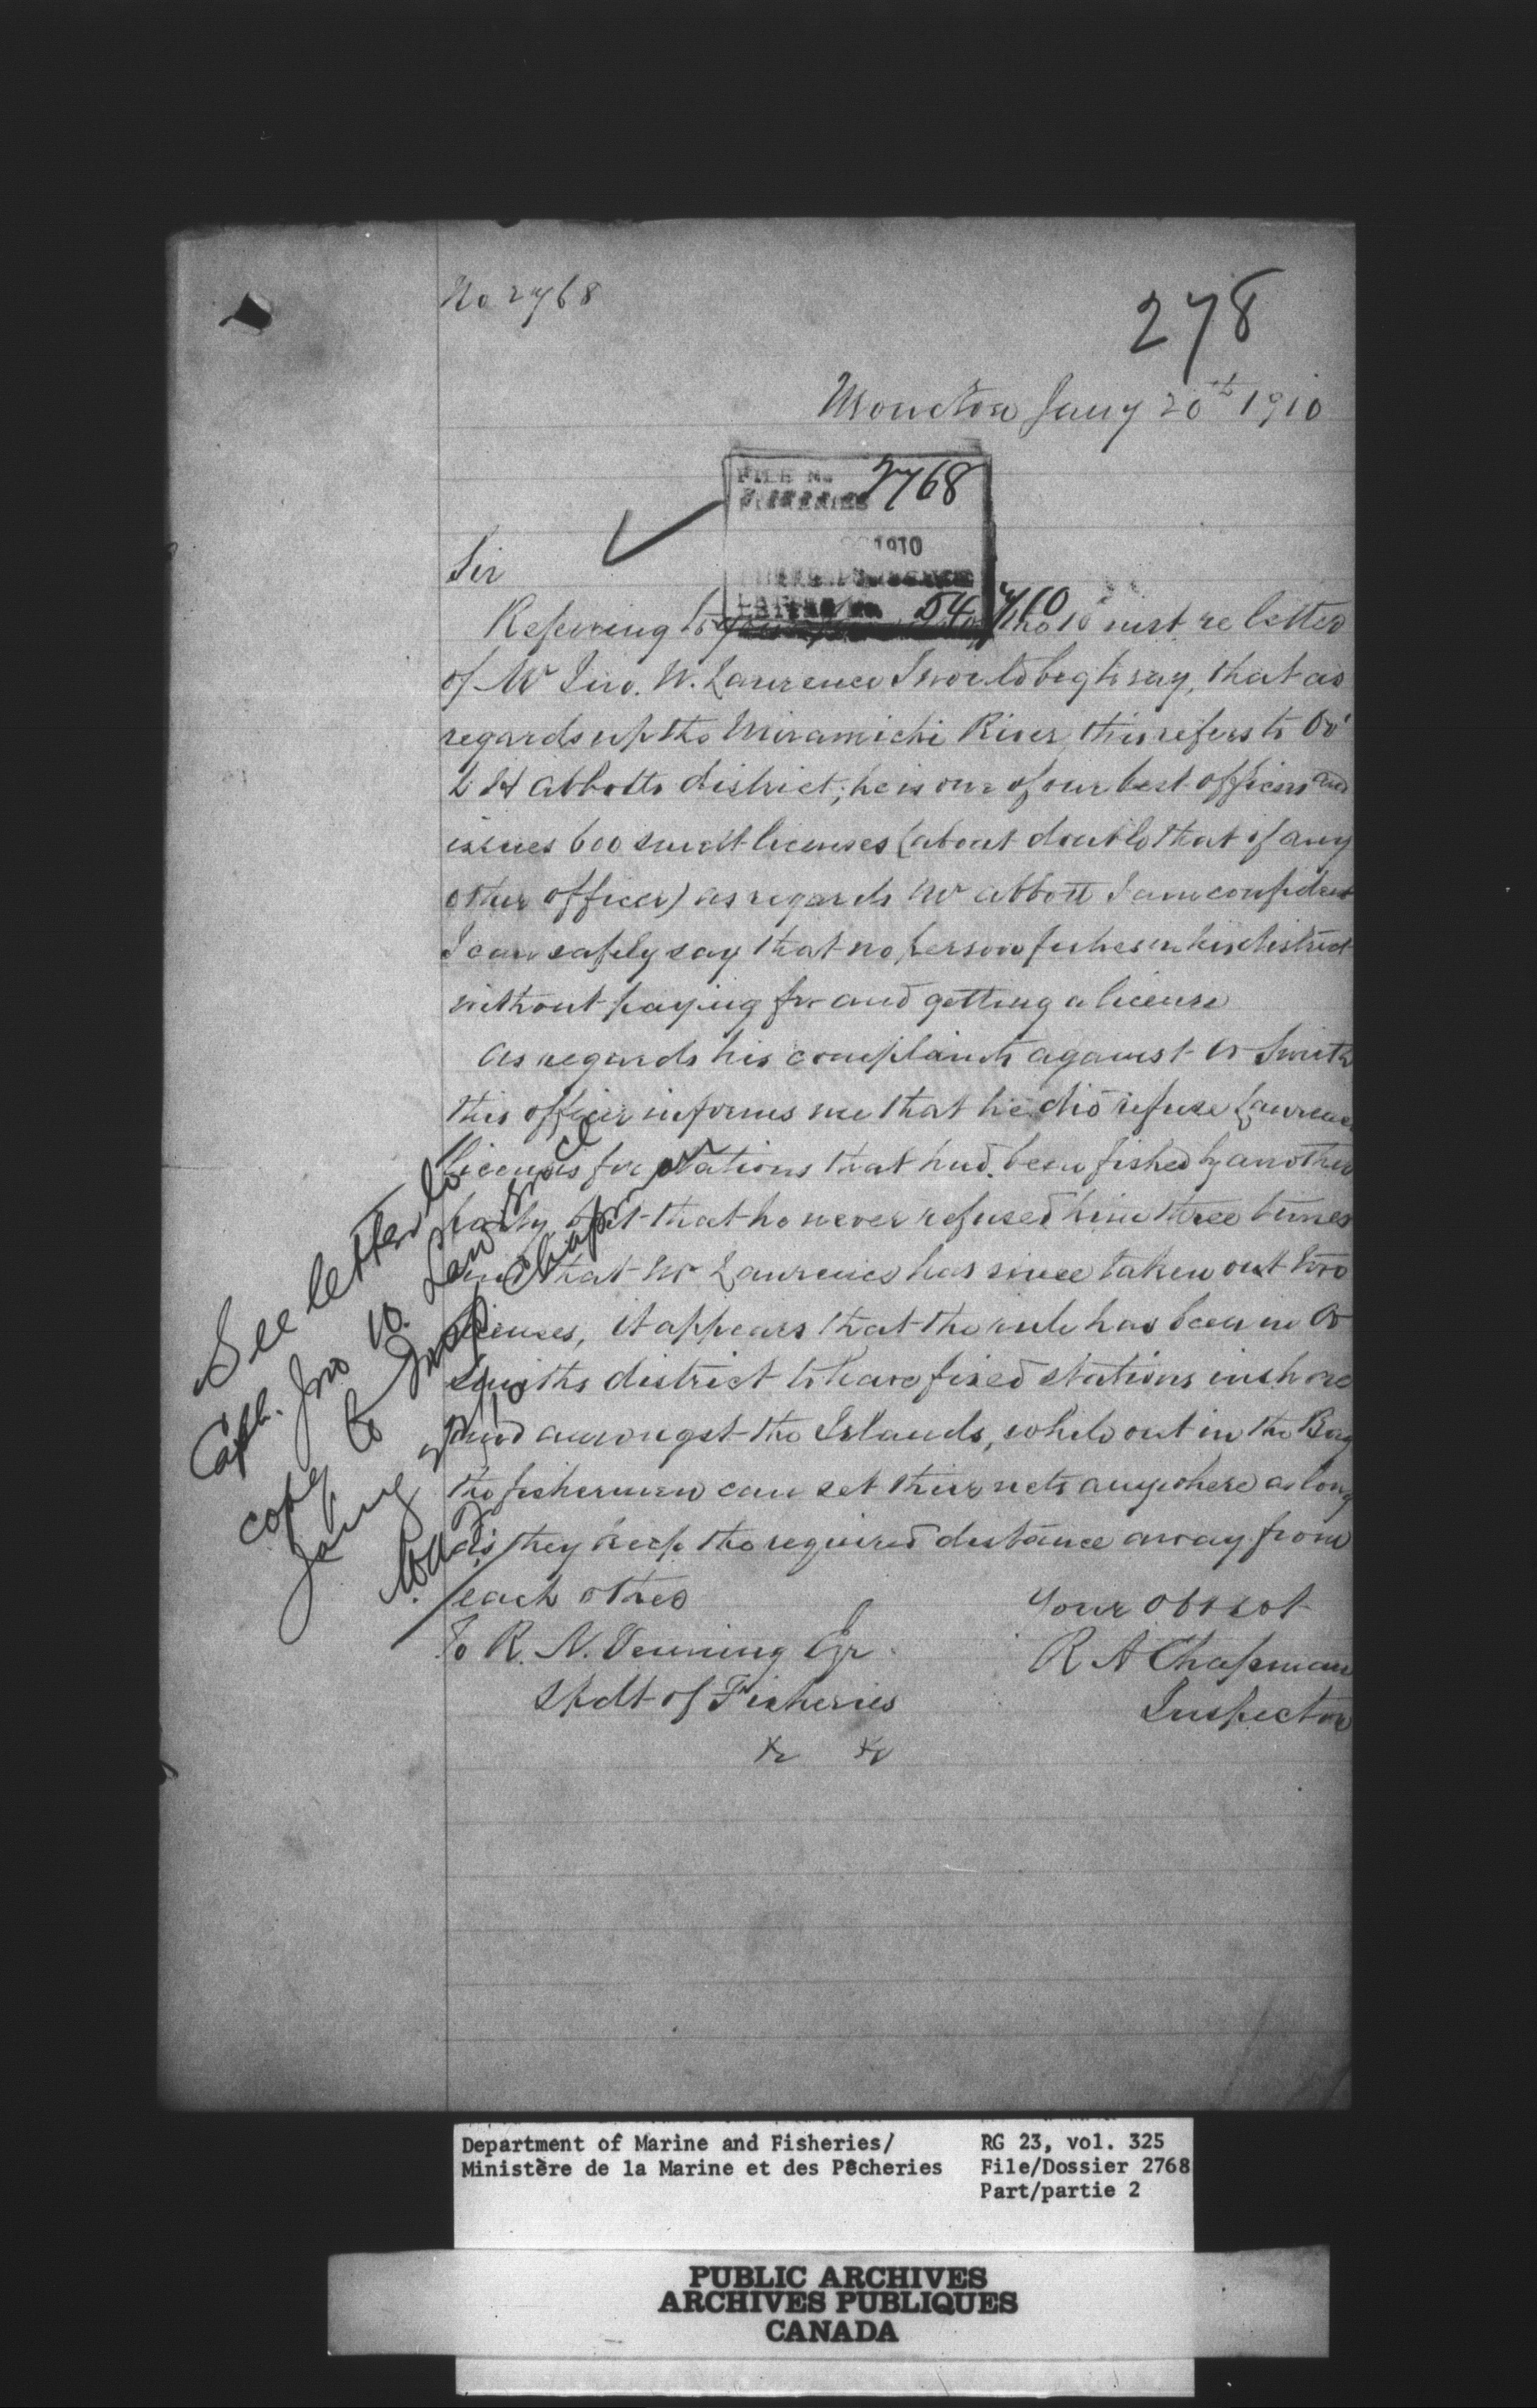 No 2768
278
Moncton Jany 20th 1910
FILE No. 2768
FISHERIES
1910
LETTER No. 54710
Sir
Referring to inst re letter
of Mr Jno. W. Lawrence I would beg to say, that as
regards up the Miramichi River, this refers to Or
L H Abbotts district; he is one of our best officers and
issues 600 smelt licenses (about double that of any
other officer) as regards Mr Abbott I am confident
I can safely say that no person fishes in his district
without paying for and getting a license
As regards his complaints against Or Smith
this officer informs me that he did refuse Lawrence
licenses for stations that had been fished by another
party, but that he never refused him three times
and that Mr Lawrence has since taken out two
licenses, it appears that the rule has been in Or
Smiths district to have fixed stations inshore
and amongst the Islands, while out in the Bay
the fishermen can set their nets anywhere as long
as they keep the required distance away from
each other
Your obt svt
R A Chapman
Inspector
To R. N. Venning Esr
Spdt of Fisheries
&c &c
See letter to
Capt. Jno W. Lawrence
copy to Insp Chapman
Jany
Department of Marine and Fisheries/
Ministère de la Marine et des Pêcheries
RG 23, vol. 325
File/Dossier 2768
Part/partie 2
PUBLIC ARCHIVES
ARCHIVES PUBLIQUES
CANADA